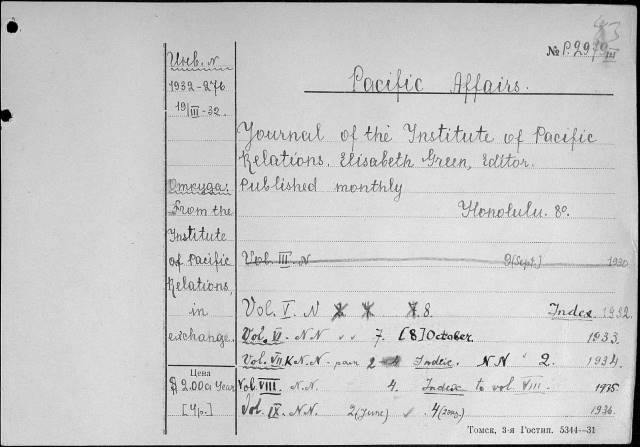 43
№ P.2979 III
Pacific Affairs.
Инв. N
1932-276
19/III-32.
Journal of the Institute of Pacific
Relations. Elisabeth Green, Editor.
Откуда: Published monthly
From the Honolulu. 8º.
Institute
of Pacific Vol. III. N 9(Sept.) 1930
Relations,
in Vol. V. N 8. Index. 1932.
exchange. Vol. VI. N.N. 7. [8] October. 1933.
Vol. VII. N.N. 2 Index. N N 2. 1934.
Цена
$ 2.00 a Year Vol. VIII. N.N. 4. Index to vol VIII. 1935
[4р.] Vol. IX. N.N. 2 (June) 4 1936.
Томск, 3-я Гостип. 5344—31